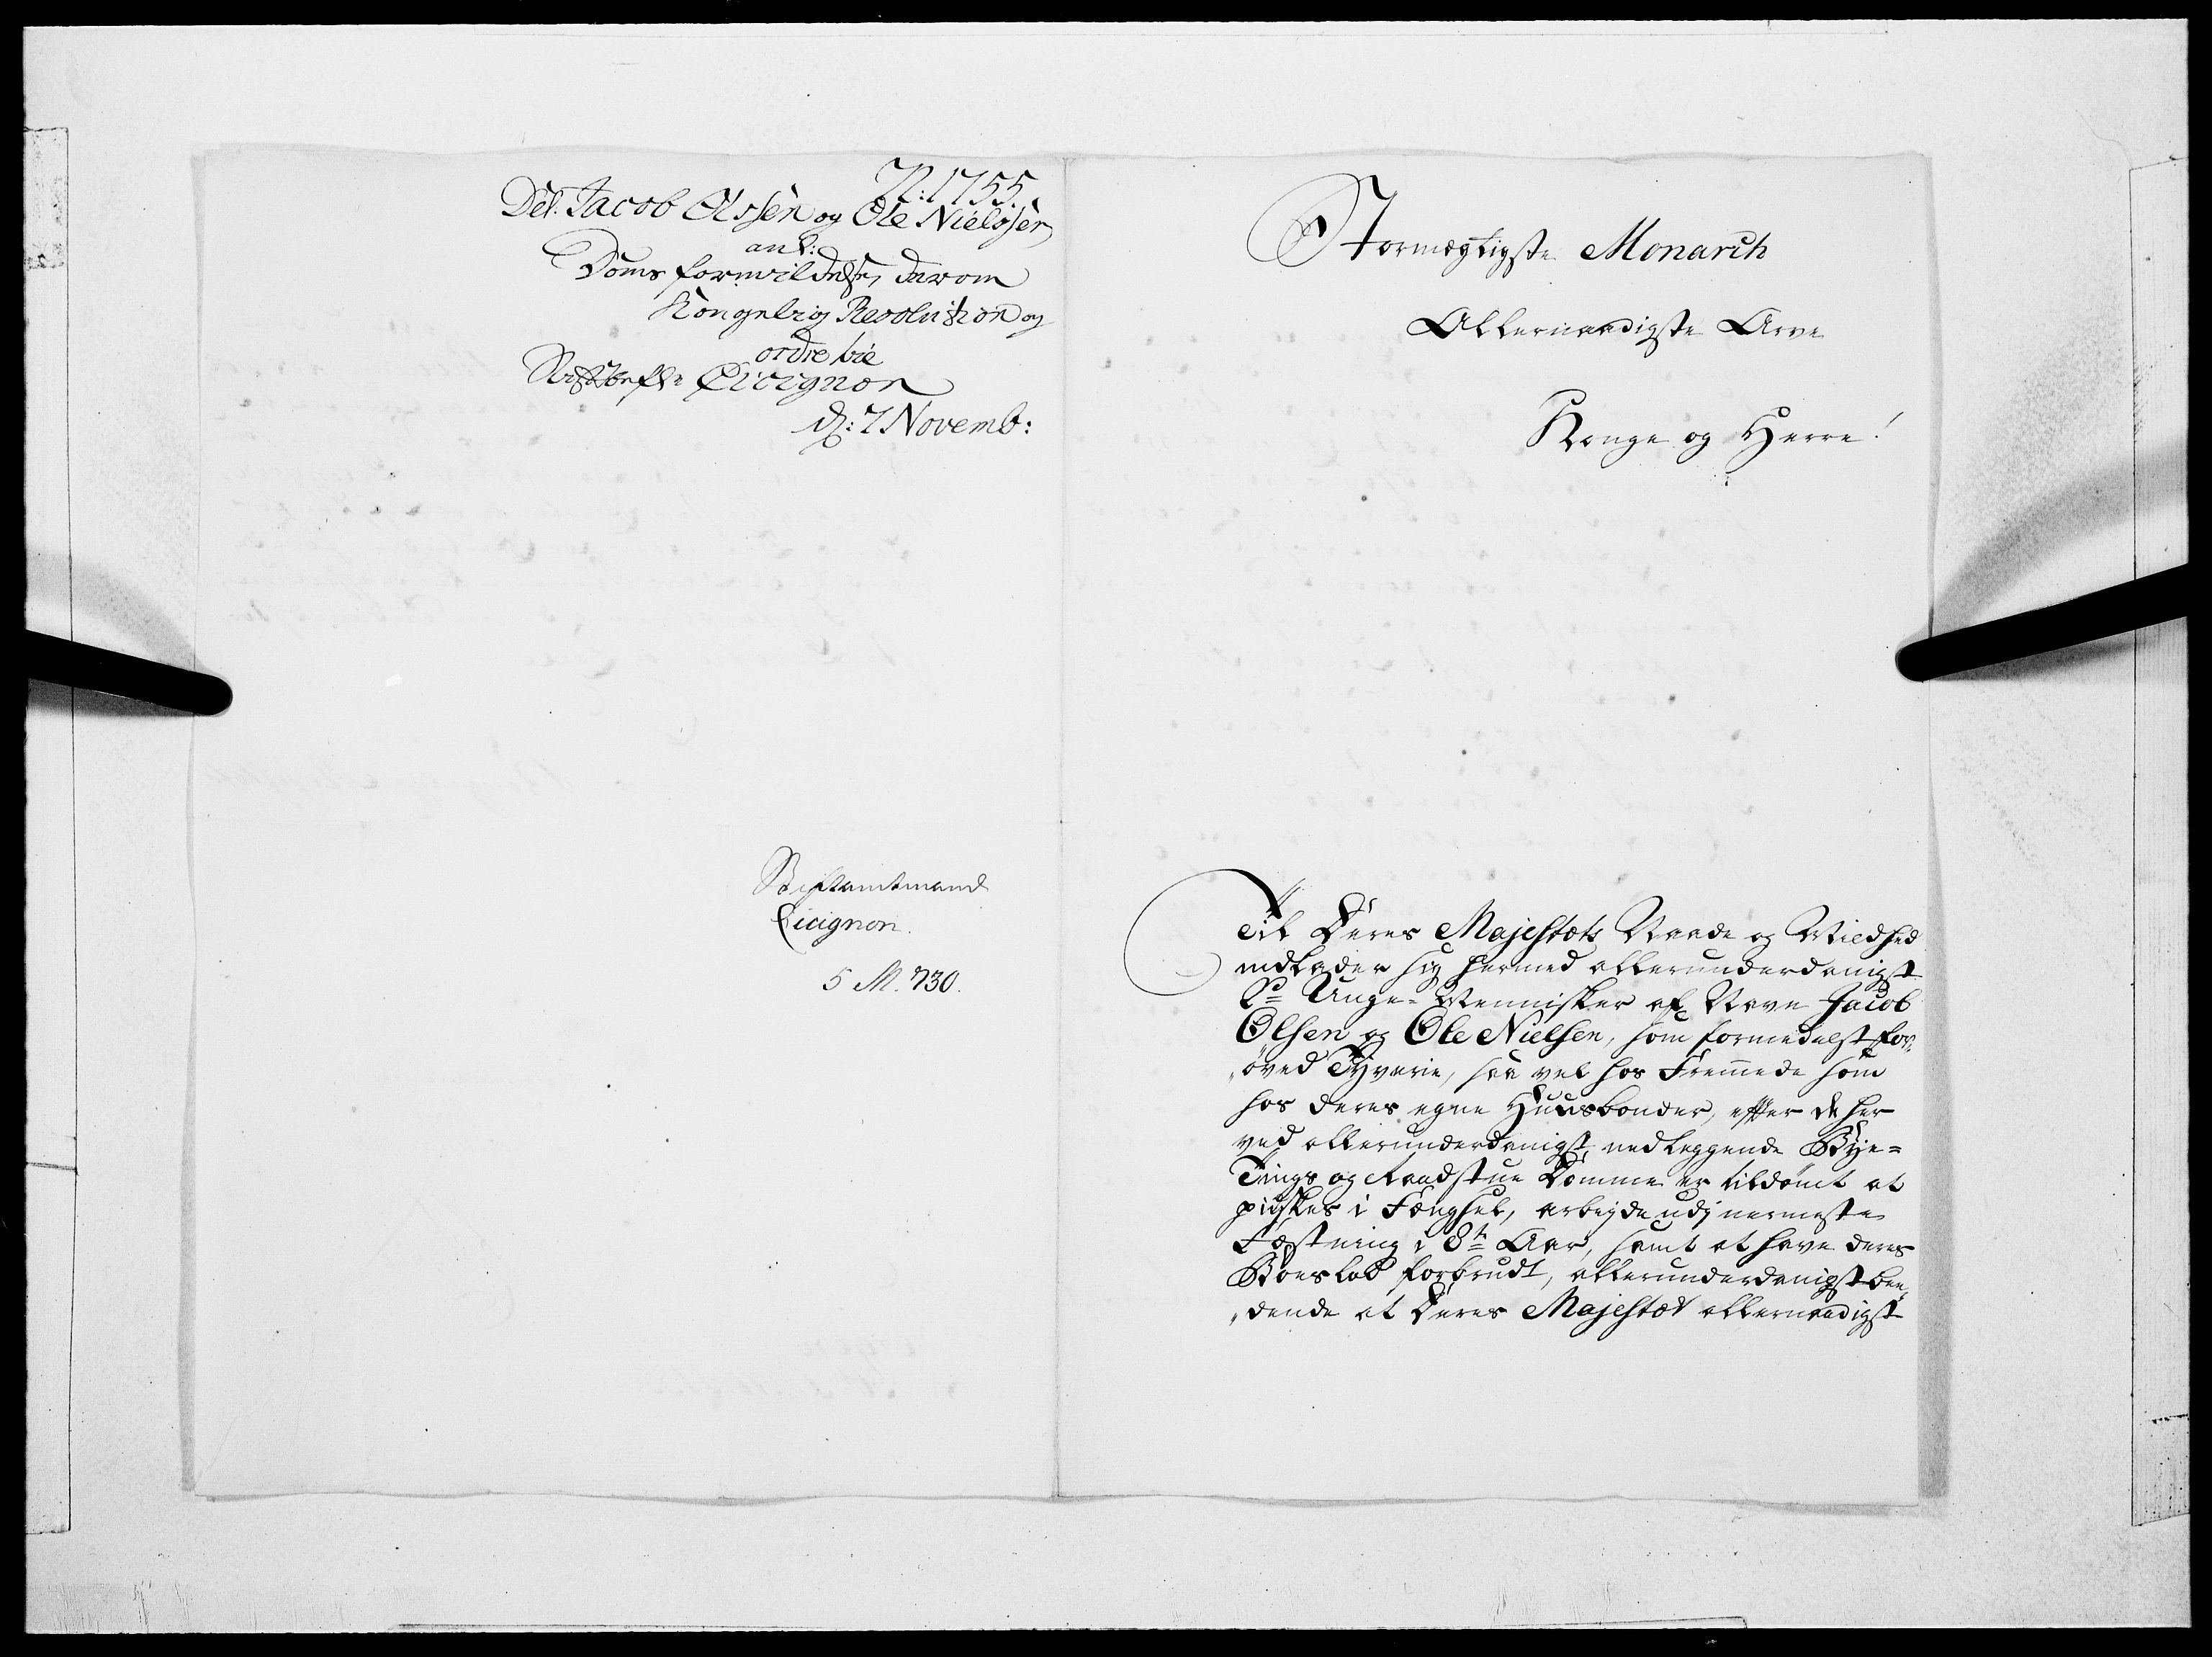 N: 1755.
Del. Jacob Olssen og Ole Nielssen
anl:
Doms formildelse, derom
Kongelig Resolution og
ordre bie
Stiftbefl: Cicignon
d: 7 Novemb:
Stiftamtmand
Cicignon.
5 M. 730.
Stormægtigste Monarch
Allernaadigste Arve
Konge og Herre!
Til Deres Majestæts Naade og Mildhed
indlader sig hermed allerunderdanigst
2de Unge-Mennisker af Navn Jacob
Olsen og Ole Nielsen, som formedelst for-
"øved Tyverie, saa vel hos Fremmede som
hos deres egne Huusbonder, efter de her
ved allerunderdanigst nedleggende Bye-
Tings og Raadstue Domme er tildømt at
pidskes i Fængsel, arbejde udj nermeste
Fæstning i 8te Aar, samt at have deres
Boeslod forbrudt, allerunderdanigst bee-
"dende at Deres Majestæt allernaadigst